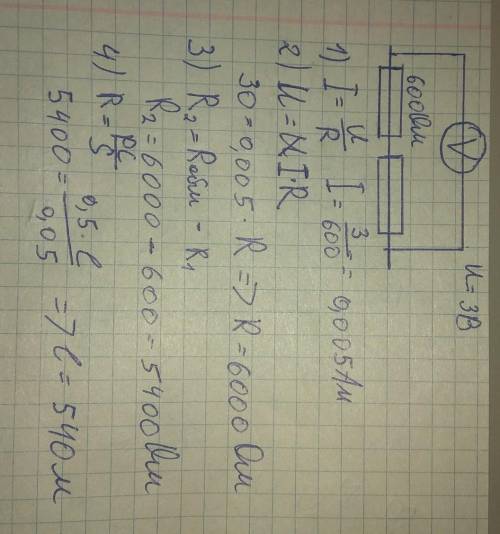 V
U=3В
600Ом
1) I = U/R I = 3/600 = 0,005Ам
2) U = I·R
30=0,005·R => R=6000Ом
3) R₂=Rобщ - R₁
R₂=6000-600=5400Ом
4) R= ρl/S
5400= 0,5·l/0,05 => l=540м